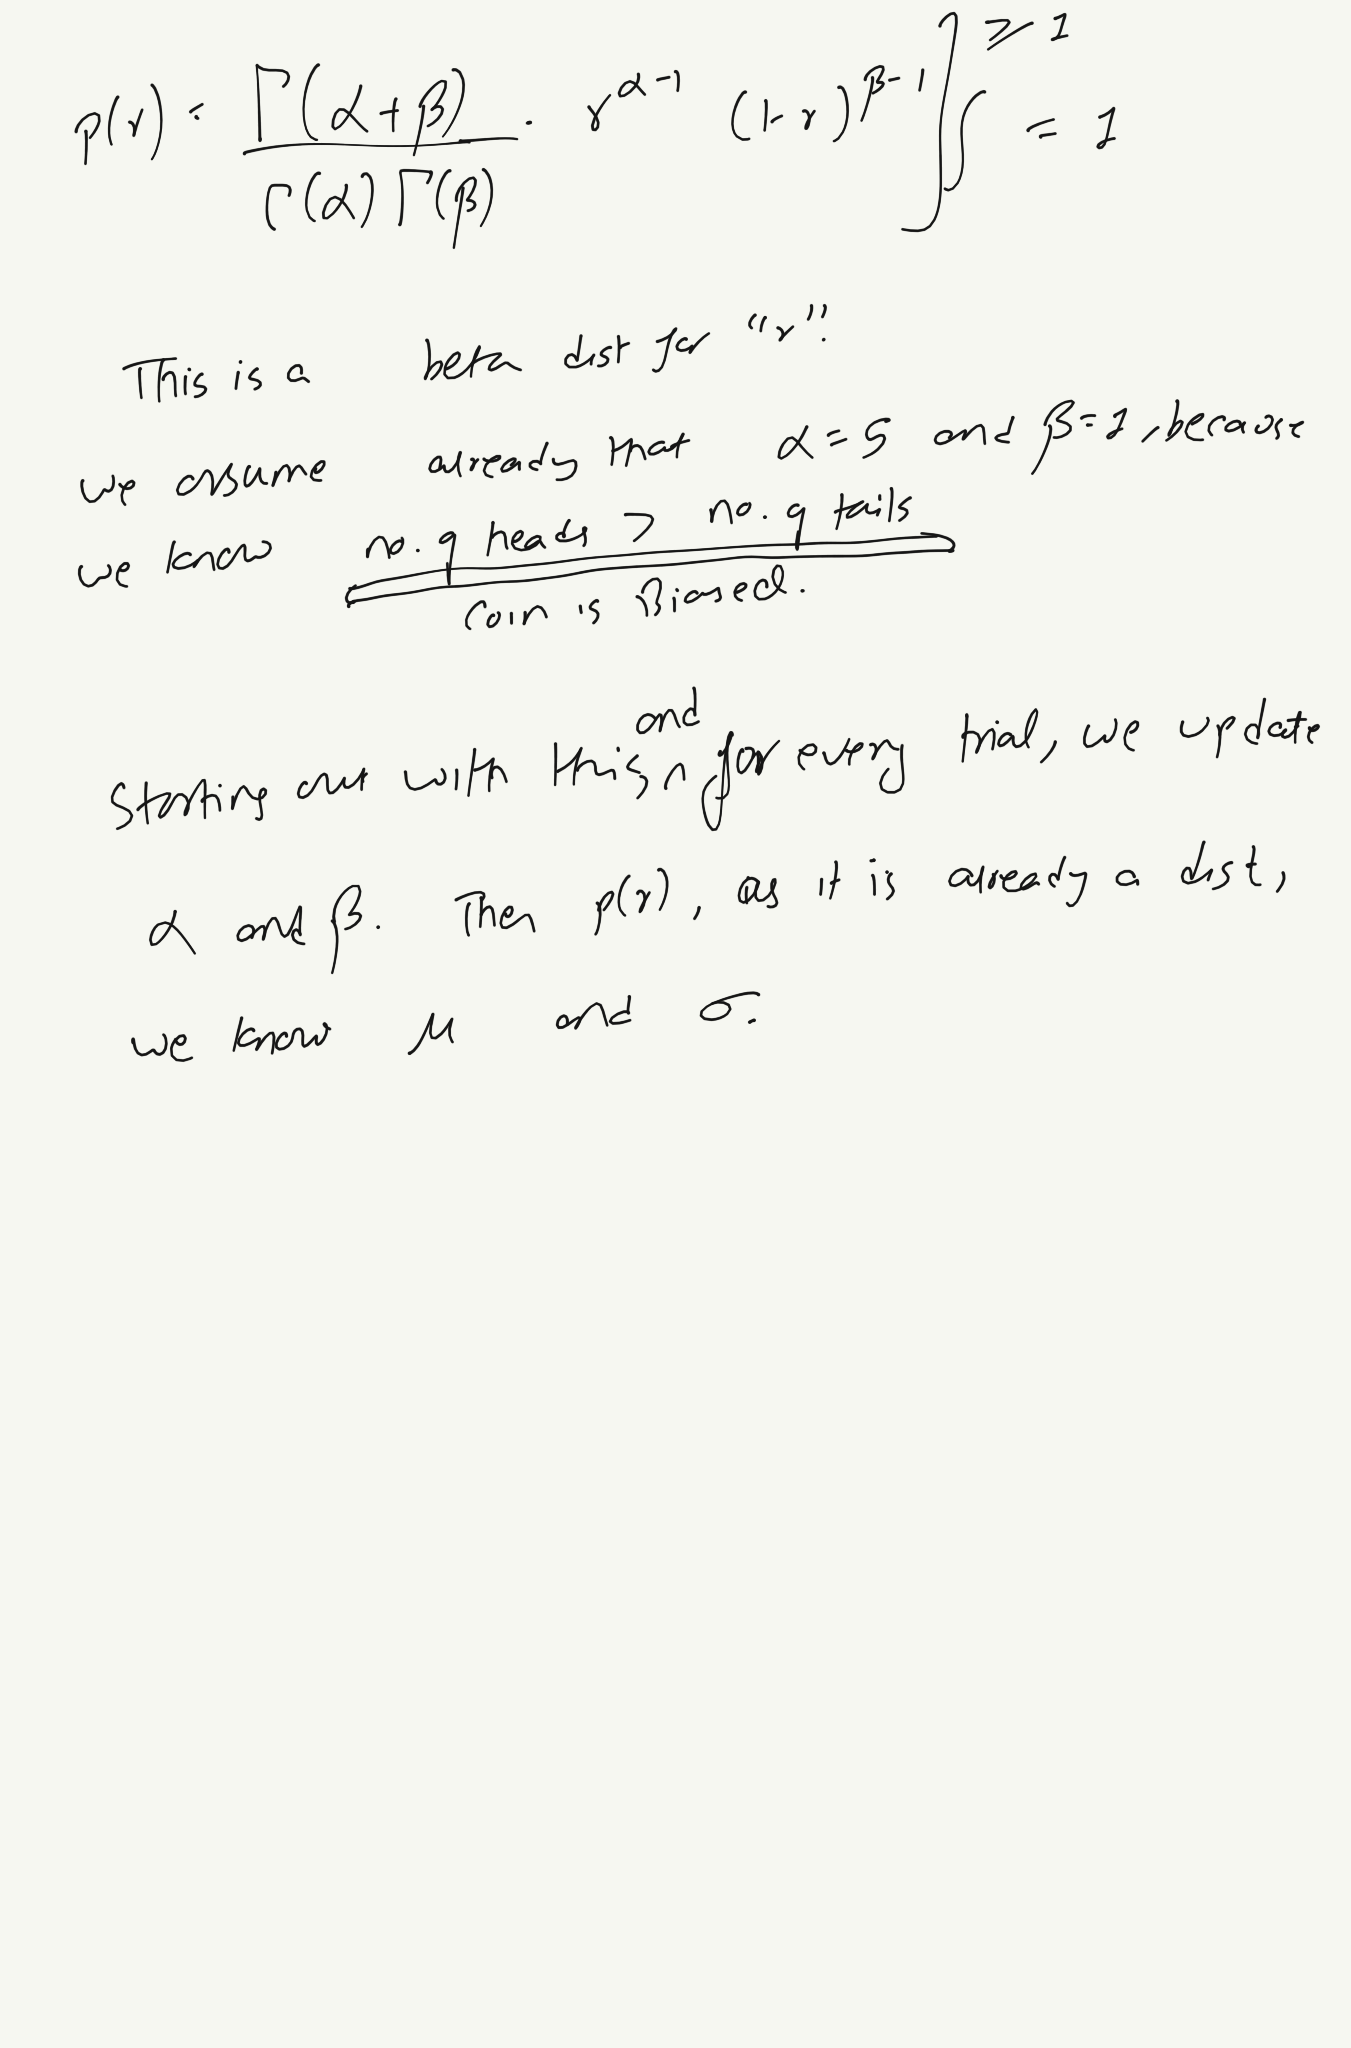 p(r) = Γ(α+β) / Γ(α) Γ(β) · r^(α-1) (1-r)^(β-1) ] ≥ 1
∫ = 1
This is a beta dist for "r".
we assume already that α = 5 and β = 1, because
we know no. of heads > no. of tails
Coin is Biased.
Starting out with this, and for every trial, we update
α and β. Then p(r), as it is already a dist,
we know μ and σ.